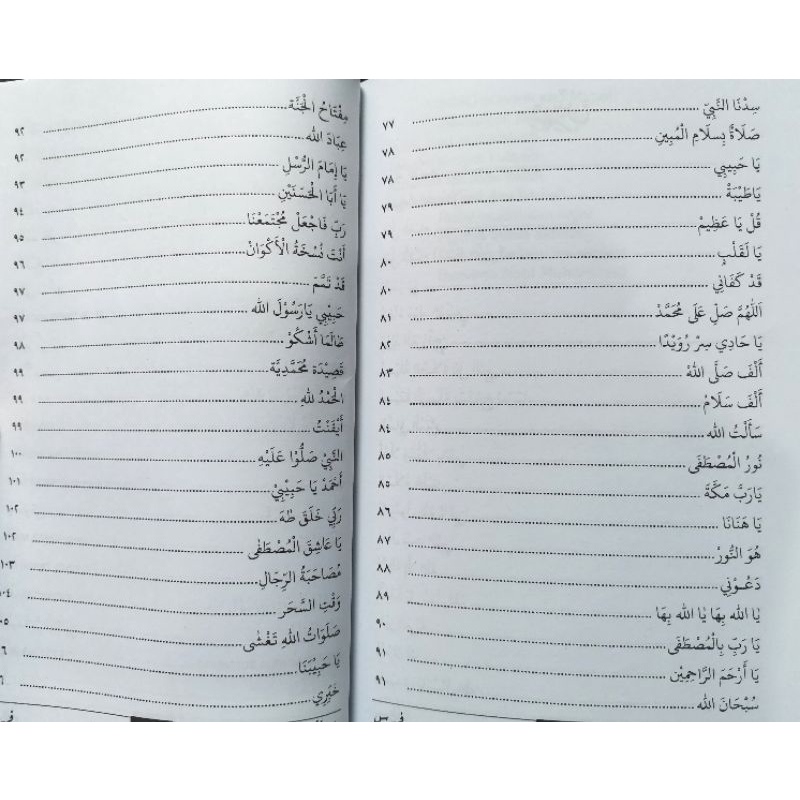 سِدْنَا النَّبِيّ ........ ٧٧
صَلَاةٌ بِسلَامِ الْمُبِينِ ........ ٧٨
يَا حَبِيبِي ........ ٧٨
يَاطَيْبَةْ ........ ٧٩
قُلْ يَا عَظِيمْ ........ ٧٩
يَا لَقَلْبٍ ........ ٨٠
قَدْ كَفَانِي ........ ٨٠
اَللّٰهُمَّ صَلِّ عَلَى مُحَمَّدْ ........ ٨١
يَا حَادِي سِرْ رُوَيْدًا ........ ٨٢
أَلْفَ صَلَّى اللهْ ........ ٨٣
أَلْفَ سَلَامْ ........ ٨٤
سَأَلْتُ الله ........ ٨٤
نُورُ الْمُصْطَفَى ........ ٨٥
يَارَبَّ مَكَّةَ ........ ٨٥
يَا هَنَانَا ........ ٨٦
هُوَ النُّورْ ........ ٨٧
دَعُونِي ........ ٨٨
يَا الله بِهَا يَا الله بِهَا ........ ٨٩
يَا رَبِّ بِالْمُصْطَفَى ........ ٩٠
يَا أَرْحَمَ الرَّاحِمِيْن ........ ٩١
سُبْحَانَ الله ........ ٩١
مِفْتَاحُ الْجَنَّة ........ ٩٢
عِبَادَ الله ........ ٩٢
يَا إِمَامَ الرُّسْلِ ........ ٩٣
يَا أَبَا الْحَسَنَيْنِ ........ ٩٤
رَبِّ فَاجْعَلْ مُجْتَمَعْنَا ........ ٩٥
أَنْتَ نُسْخَةُ الْأَكْوَانْ ........ ٩٦
قَدْ تَمَّمَ ........ ٩٧
حَبِيْبِي يَارَسُوْلَ الله ........ ٩٧
طَالَمَا أَشْكُوْ ........ ٩٨
قَصِيْدَة مُحَمَّدِيَّة ........ ٩٩
الْحَمْدُ لِلّٰهِ ........ ٩٩
أَيْقَنْتُ ........ ٩٩
النَّبِيّ صَلُّوْا عَلَيْهِ ........ ١٠٠
أَحْمَدْ يَا حَبِيْبِيْ ........ ١٠١
رَبِّي خَلَقْ طٰهَ ........ ١٠٢
يَا عَاشِقَ الْمُصْطَفَى ........ ١٠٢
مُصَاحَبَةُ الرِّجَالِ ........ ١٠٣
وَقْتِ السَّحَر ........ ٠٤
صَلَوَاتُ اللهِ تَغْشَى ........ ٠٥
يَا حَبِيْبَنَا ........ ٦
خَبِّرِي ........ ٦